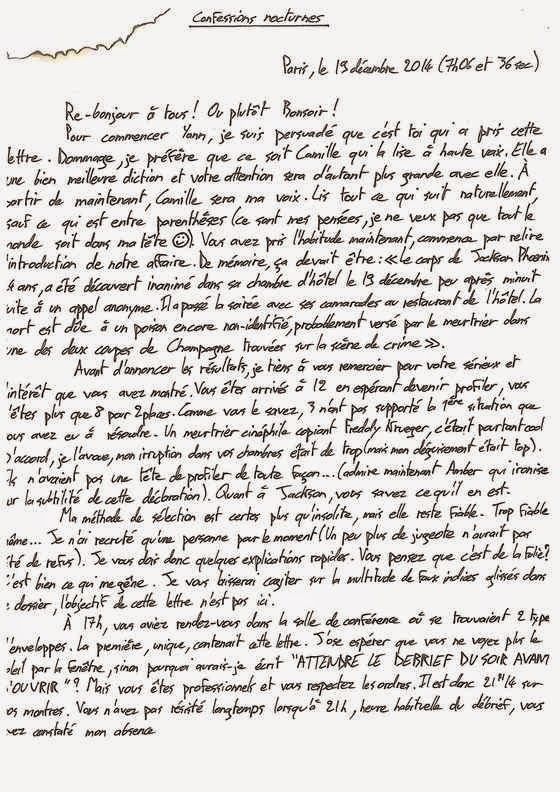 Confessions nocturnes
Paris, le 13 décembre 2014 (7h06 et 36 sec)
Re-bonjour à tous! Ou plutôt Bonsoir!
Pour commencer Yann, je suis persuadé que c'est toi qui a pris cette
lettre. Dommage, je préfère que ce soit Camille qui la lise à haute voix. Elle a
une bien meilleure diction et votre attention sera d'autant plus grande avec elle. À
partir de maintenant, Camille sera ma voix. Lis tout ce qui suit naturellement,
sauf ce qui est entre parenthèses (ce sont mes pensées, je ne veux pas que tout le
monde soit dans ma tête ☺). Vous avez pris l'habitude maintenant, commence par relire
l'introduction de notre affaire. De mémoire, ça devait être: «Le corps de Jackson Phoenix
ans, a été découvert inanimé dans sa chambre d'hôtel le 13 décembre peu après minuit
uite à un appel anonyme. Il a passé la soirée avec ses camarades au restaurant de l'hôtel. La
mort est dûe à un poison encore non-identifié, probablement versé par le meurtrier dans
une des deux coupes de Champagne trouvées sur la scène de crime».
Avant d'annoncer les résultats, je tiens à vous remercier pour votre sérieux et
l'intérêt que vous avez montré. Vous êtes arrivés à 12 en espérant devenir profiler, vous
n'êtes plus que 8 pour 2 places. Comme vous le savez, 3 n'ont pas supporté la 1ère situation que
vous avez eu à résoudre. Un meurtrier cinéphile copiant Freddy Krueger, c'était pourtant cool
D'accord, je l'avoue, mon irruption dans vos chambres était de trop (mais mon déguisement était top).
Ils n'avaient pas une tête de profiler de toute façon.... (admire maintenant Amber qui ironise
sur la subtilité de cette déclaration). Quant à Jackson, vous savez ce qu'il en est.
Ma méthode de sélection est certes plus qu'insolite, mais elle reste fiable. Trop fiable
même... Je n'ai recruté qu'une personne pour le moment (Un peu plus de jugeote n'aurait pas
été de refus). Je vous dois donc quelques explications rapides. Vous pensez que c'est de la folie?
C'est bien ce qui me gêne. Je vous laisserai cogiter sur la multitude de faux indices glissés dans
le dossier, l'objectif de cette lettre n'est pas ici.
À 17h, vous aviez rendez-vous dans la salle de conférence où se trouvaient 2 type
d'enveloppes. La première, unique, contenait cette lettre. J'ose espérer que vous ne voyez plus le
soleil par la fenêtre, sinon pourquoi aurais-je écrit "ATTENDRE LE DEBRIEF DU SOIR AVANT
L'OUVRIR"? Mais vous êtes professionnels et vous respectez les ordres. Il est donc 21H14 sur
vos montres. Vous n'avez pas résisté longtemps lorsqu'à 21h, heure habituelle du débrief, vous
avez constaté mon absence